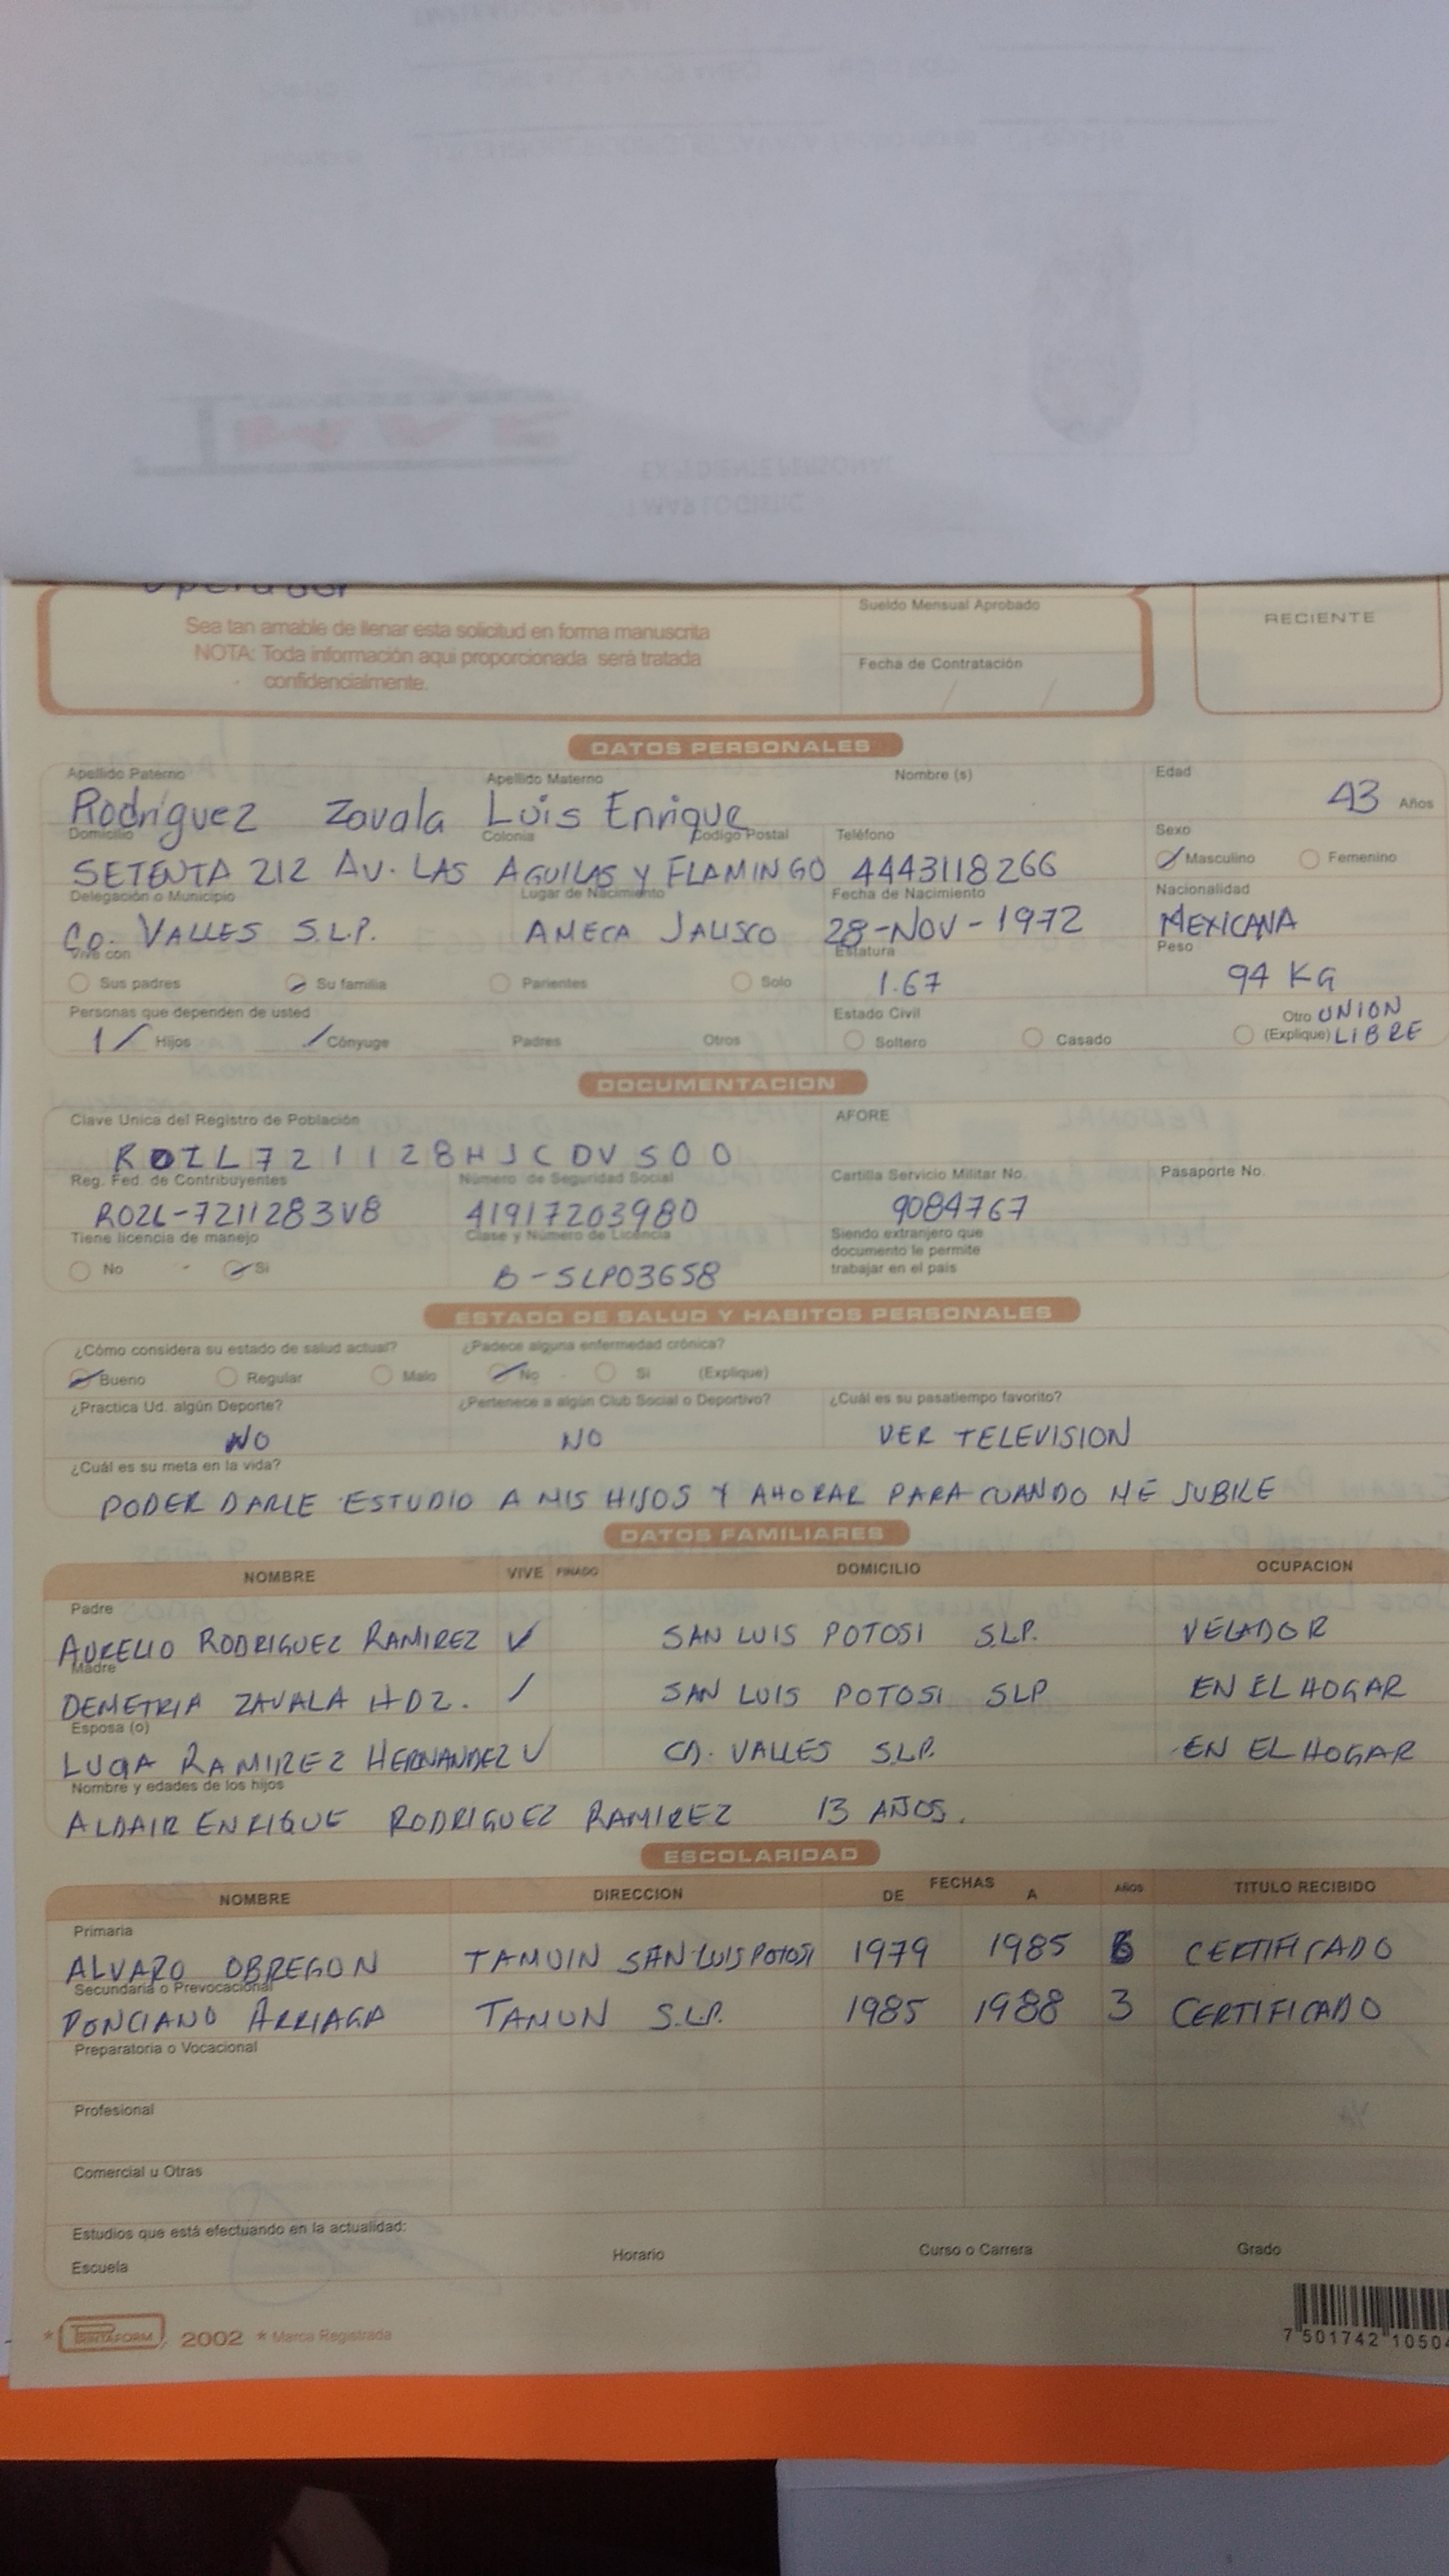 Operador
Sea tan amable de llenar esta solicitud en forma manuscrita
NOTA: Toda información aqui proporcionada será tratada
confidencialmente.
Sueldo Mensual Aprobado
Fecha de Contratación
RECIENTE
DATOS PERSONALES
Apellido Paterno Apellido Materno Nombre (s) Edad
Rodríguez Zavala Luis Enrique 43 Años
Domicilio Colonia Codigo Postal Teléfono Sexo
SETENTA 212 AV. LAS AGUILAS Y FLAMINGO 4443118266 Masculino Femenino
Delegación o Municipio Lugar de Nacimiento Fecha de Nacimiento Nacionalidad
CD. VALLES S.L.P. AMECA JALISCO 28-NOV-1972 MEXICANA
Vive con Estatura Peso
Sus padres Su familia Parientes Solo 1.67 94 KG
Personas que dependen de usted Estado Civil
1 Hijos Cónyuge Padres Otros Soltero Casado Otro (Explique) UNION LIBRE
DOCUMENTACION
Clave Unica del Registro de Población AFORE
ROZL721128HJCDVS00
Reg. Fed. de Contribuyentes Número de Seguridad Social Cartilla Servicio Militar No. Pasaporte No.
ROZL-7211283V8 41917203980 9084767
Tiene licencia de manejo Clase y Número de Licencia Siendo extranjero que
documento le permite
trabajar en el país
No Si B-SLP03658
ESTADO DE SALUD Y HABITOS PERSONALES
¿Cómo considera su estado de salud actual? ¿Padece alguna enfermedad crónica?
Bueno Regular Malo No Si (Explique)
¿Practica Ud. algún Deporte? ¿Pertenece a algún Club Social o Deportivo? ¿Cuál es su pasatiempo favorito?
NO NO VER TELEVISION
¿Cuál es su meta en la vida?
PODER DARLE ESTUDIO A MIS HIJOS Y AHORAR PARA CUANDO ME JUBILE
DATOS FAMILIARES
NOMBRE VIVE FINADO DOMICILIO OCUPACION
Padre
AURELIO RODRIGUEZ RAMIREZ SAN LUIS POTOSI S.L.P. VELADOR
Madre
DEMETRIA ZAVALA HDZ. SAN LUIS POTOSI SLP EN EL HOGAR
Esposa (o)
RAMIREZ HERNANDEZ CD. VALLES S.L.P. EN EL HOGAR
Nombre y edades de los hijos
ALDAIR ENRIQUE RODRIGUEZ RAMIREZ 13 AÑOS.
ESCOLARIDAD
NOMBRE DIRECCION FECHAS DE A AÑOS TITULO RECIBIDO
Primaria
ALVARO OBREGON TAMUIN SAN LUIS POTOSI 1979 1985 6 CERTIFICADO
Secundaria o Prevocacional
PONCIANO ARRIAGA TAMUN S.L.P. 1985 1988 3 CERTIFICADO
Preparatoria o Vocacional
Profesional
Comercial u Otras
Estudios que está efectuando en la actualidad:
Escuela Horario Curso o Carrera Grado
* PRINTAFORM 2002 * Marca Registrada
7 501742 10504